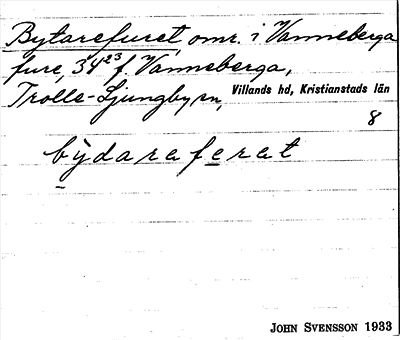 Bytarefuret, omr. i Vanneberga
fure, 34²³ f. Vanneberga,
Trolle-Ljungby sn, Villands hd, Kristianstads län
8
bỳdaraferat
JOHN SVENSSON 1933